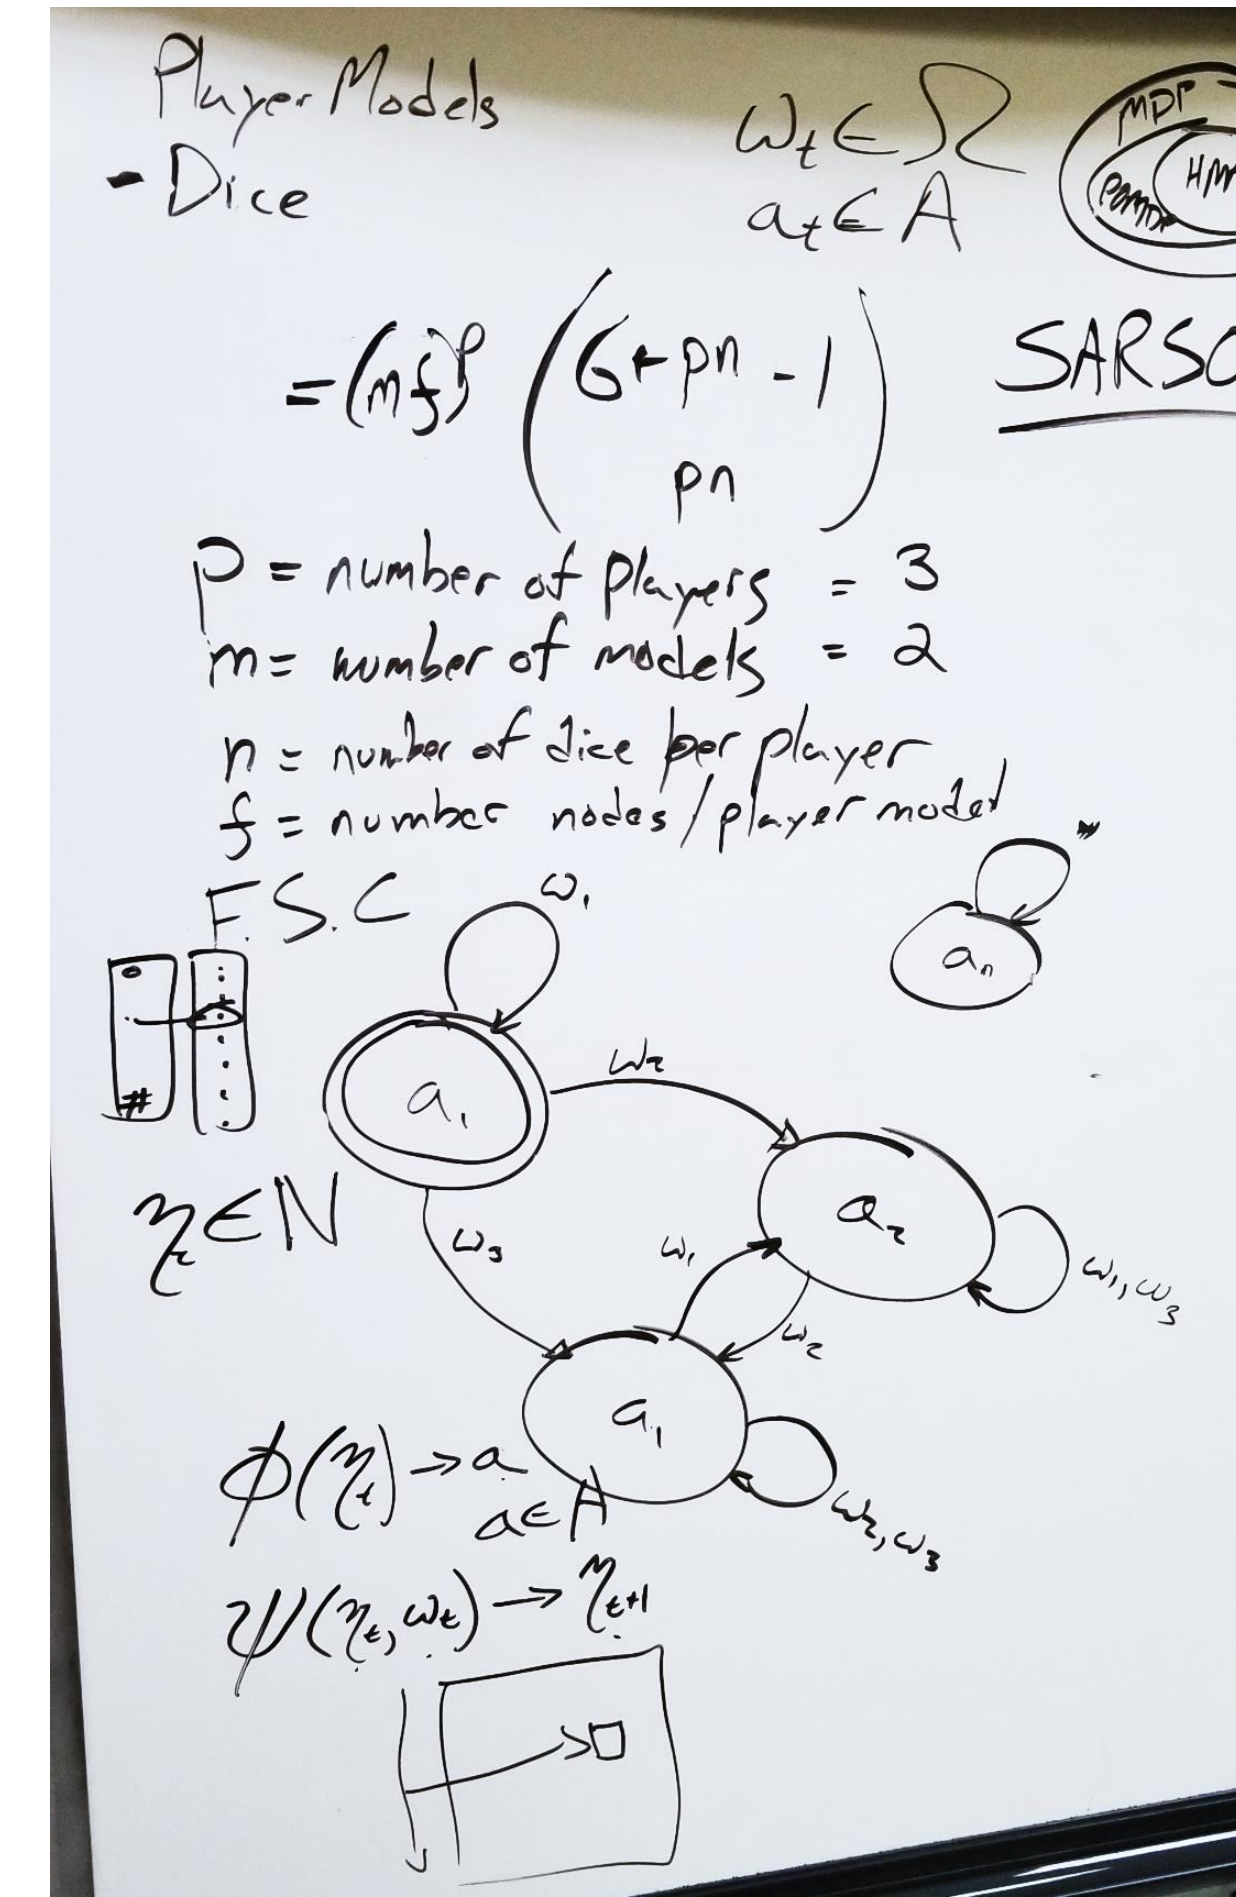 Player Models
- Dice
ωₜ ∈ Ω
aₜ ∈ A
MDP
POMDP
HM
= (mf)ᵖ (6 + pn - 1
pn)
SARSO
p = number of players = 3
m = number of models = 2
n = number of dice per player
f = number nodes/player model
F.S.C
ω₁
aₙ
#
a₁
ω₂
ηₜ ∈ N
ω₃
a₂
ω₁
ω₁, ω₃
ω₂
a₁
ω₂, ω₃
ϕ(ηₜ) → a
a ∈ A
ψ(ηₜ, ωₜ) → ηₜ₊₁